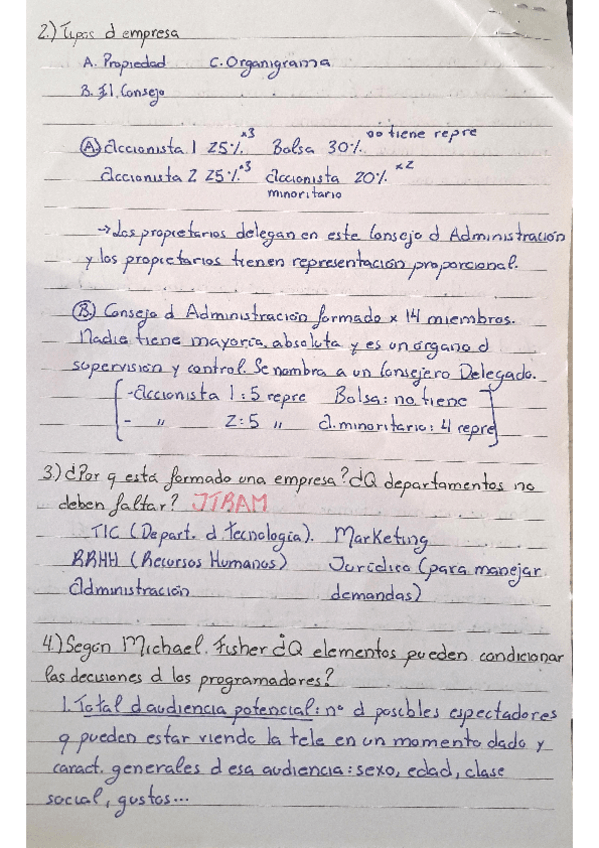 2.) Tipos d empresa
A. Propiedad C. Organigrama
B. El Consejo
Ⓐ Accionista 1 25% ×3 Bolsa 30% no tiene repre
Accionista 2 25% ×3 Accionista 20% ×2
minoritario
→ Los propietarios delegan en este Consejo d Administración
y los propietarios tienen representación proporcional.
Ⓑ Consejo d Administración formado × 14 miembros.
Nadie tiene mayoría absoluta y es un órgano d
supervisión y control. Se nombra a un Consejero Delegado.
- Accionista 1: 5 repre Bolsa: no tiene
- " 2: 5 " A. minoritario: 4 repre
3.) ¿Por q está formado una empresa? ¿Q departamentos no
deben faltar? JTRAM
TIC (Depart. d Tecnología). Marketing
RRHH (Recursos Humanos) Jurídico (para manejar
Administración demandas)
4.) Según Michael. Fisher ¿Q elementos pueden condicionar
las decisiones d los programadores?
1. Total d audiencia potencial: nº d posibles espectadores
q pueden estar viendo la tele en un momento dado y
caract. generales d esa audiencia: sexo, edad, clase
social, gustos...